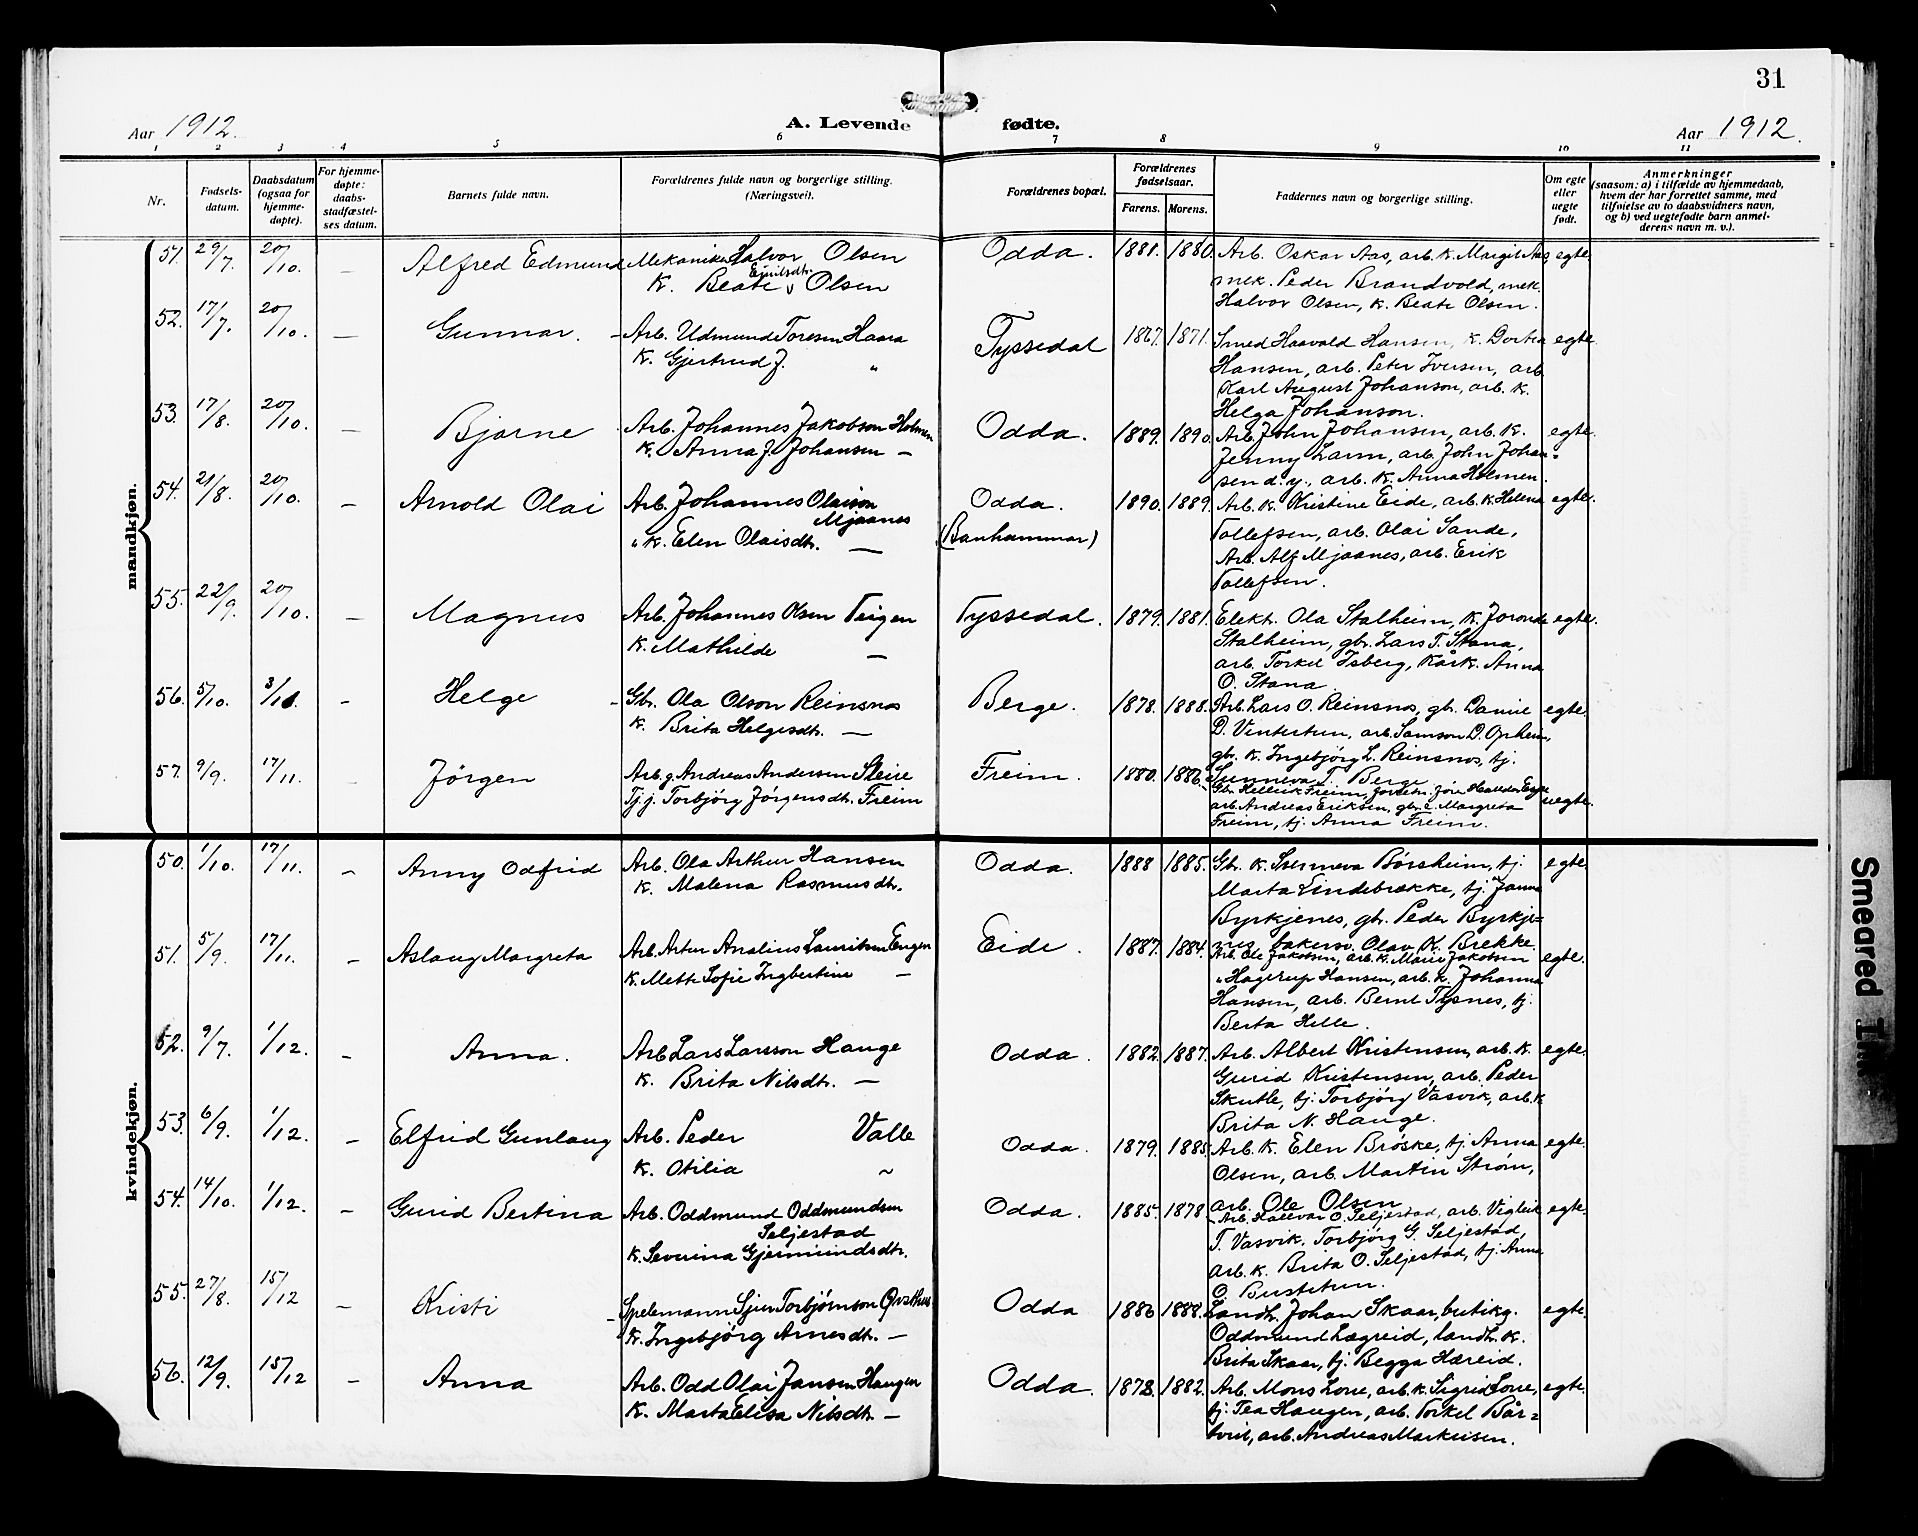 31
Aar 1912.
A. Levende fødte.
Aar 1912.
1 2 3 4 5 6 7 8 9 10 11
Nr.
Fødsels-
datum.
Daabsdatum
(ogsaa for
hjemme-
døpte).
For hjemme-
døpte:
daabs-
stadfæstel-
ses datum.
Barnets fulde navn.
Forældrenes fulde navn og borgerlige stilling.
(Næringsvei).
Forældrenes bopæl.
Forældrenes
fødselsaar.
Farens. Morens.
Faddernes navn og borgerlige stilling.
Om egte
eller
uegte
født.
Anmerkninger
(saasom: a) i tilfælde av hjemmedaab,
hvem der har forrettet samme, med
tilføielse av to daabsvidners navn,
og b) ved uegtefødte barn anmel-
derens navn m. v.).
mandkjøn.
51. 29/7. 20/10. — Alfred Edmund Mekaniker Halvor Olsen Odda. 1881. 1880. Arb. Oskar Aas, arb. k. Margit Aas, egte.
K. Beate Emilsdt. Olsen mek. Peder Brandvold, mek.
Halvor Olsen, k. Beate Olsen.
52. 17/7. 20/10. — Gunnar. Arb. Udmund Toresen Haara Tyssedal 1867. 1871. Smed Haavald Hansen, k. Dortea egte.
K. Gjertrud J. „ Hansen, arb. Peter Iversen, arb.
Karl August Johanson, arb. k.
Helga Johanson.
53. 17/8. 20/10. — Bjarne Arb. Johannes Jakobson Holmen Odda. 1889. 1890. Arb. John Johansen, arb. k. egte.
K. Anna J. Johansen — Jenny Larm, arb. John Johan-
sen d.y., arb. k. Anna Holmen.
54. 21/8. 20/10. — Arnold Olai Arb. Johannes Olaison Odda. 1890. 1889. Arb. k. Kristine Eide, arb. k. Helena egte.
Mjaanes
„ k. Elen Olaisdt. — (Banhammar) Tollefsen, arb. Olai Sande,
Arb. Alf Mjaanes, arb. Erik
Tollefsen.
55. 22/9. 20/10. — Magnus Arb. Johannes Olsen Teigen Tyssedal. 1879. 1881. Elekt. Ola Stalheim, k. Joronde egte.
K. Mathilde — Stalheim, gbr. Lars T. Stana,
arb. Torkel Isberg, Kårk. Anna
O. Stana.
56. 5/10. 3/11. - Helge Gbr. Ola Olson Reinsnos Berge. 1878. 1888. Arb. Lars O. Reinsnos, gbr. Daniel egte
K. Brita Helgesdt. — D. Vintertun, arb. Samson D. Opheim,
gbr. k. Ingebjørg L. Reinsnos, tj.
Sunneva T. Berge
57. 9/9. 17/11. — Jörgen Arb. g. Andreas Andersen Steire Freim. 1880. 1886. uegte.
Tj. j. Torbjörg Jörgensdt. Freim
arb. Andreas Eriksen, gbr. e. Margreta
Freim, tj. Anna Freim.
kvindekjøn.
50. 1/10. 17/11. — Anny Odfrid Arb. Ola Arthur Hansen Odda. 1888 1885. Gbr. k. Sunneva Børsheim, tj. egte.
K. Malena Rasmusdt. Marta Lindebrække, tj. Janna
Byrkjenes, gbr. Peder Byrkje=
nes, bakersv. Olav K. Brekke.
51. 5/9. 17/11. — Aslaug Margreta Arb. Artur Analius Lauritsen Engen Eide. 1887. 1884. Arb. Ole Jakobsen, arb. k. Marie Jakobsen egte.
K. Mette Sofie Ingbertine — „ Hagerup Hansen, arb. k. Johanna
Hansen, arb. Bernt Tysnes, tj.
Berta Helle.
52. 9/7. 1/12. — Anna. Arb. Lars Larsson Hauge Odda. 1882. 1887. Arb. Albert Kristensen, arb. k. egte.
K. Brita Nilsdt. — Gurid Kristensen, arb. Peder
Skutle, tj. Torbjörg Vasvik, arb. k
Brita N. Hauge.
53. 6/9. 1/12. — Elfrid Gunlaug Arb. Peder Valle Odda. 1879. 1885. Arb. k. Elen Brøske, tj. Anna egte.
K. Otilia ~ Olsen, arb. Martin Strøm,
arb. Ole Olsen
54. 14/10. 1/12. — Gurid Bertina Arb. Oddmund Oddmundsen Odda. 1885. 1878. Arb. Hallvar O. Seljestad, arb. Vigleik egte.
Seljestad T. Vasvik, Torbjörg G. Seljestad,
K. Severina Gjermundsdt. arb. k. Brita O. Seljestad, tj. Anna
O. Bustetun.
55. 27/8. 15/12 — Kristi Spelemann Sjur Torbjørnson Odda 1886 1888. Landh. Johan Skaar, butikg. egte.
K. Ingebjörg Arnesdt. — Oddmund Lægreid, landh. k.
Brita Skaar, tj. Begga Hæreid.
56. 12/9. 15/12 — Anna Arb. Odd Olai Jansen Haugen Odda. 1878. 1882. Arb. Mons Lone, arb. k. Sigrid Lone, egte.
K. Marta Elisa Nilsdt. — tj. Tea Haugen, arb. Torkel Bår=
tveit, arb. Andreas Markusen.
Smeared